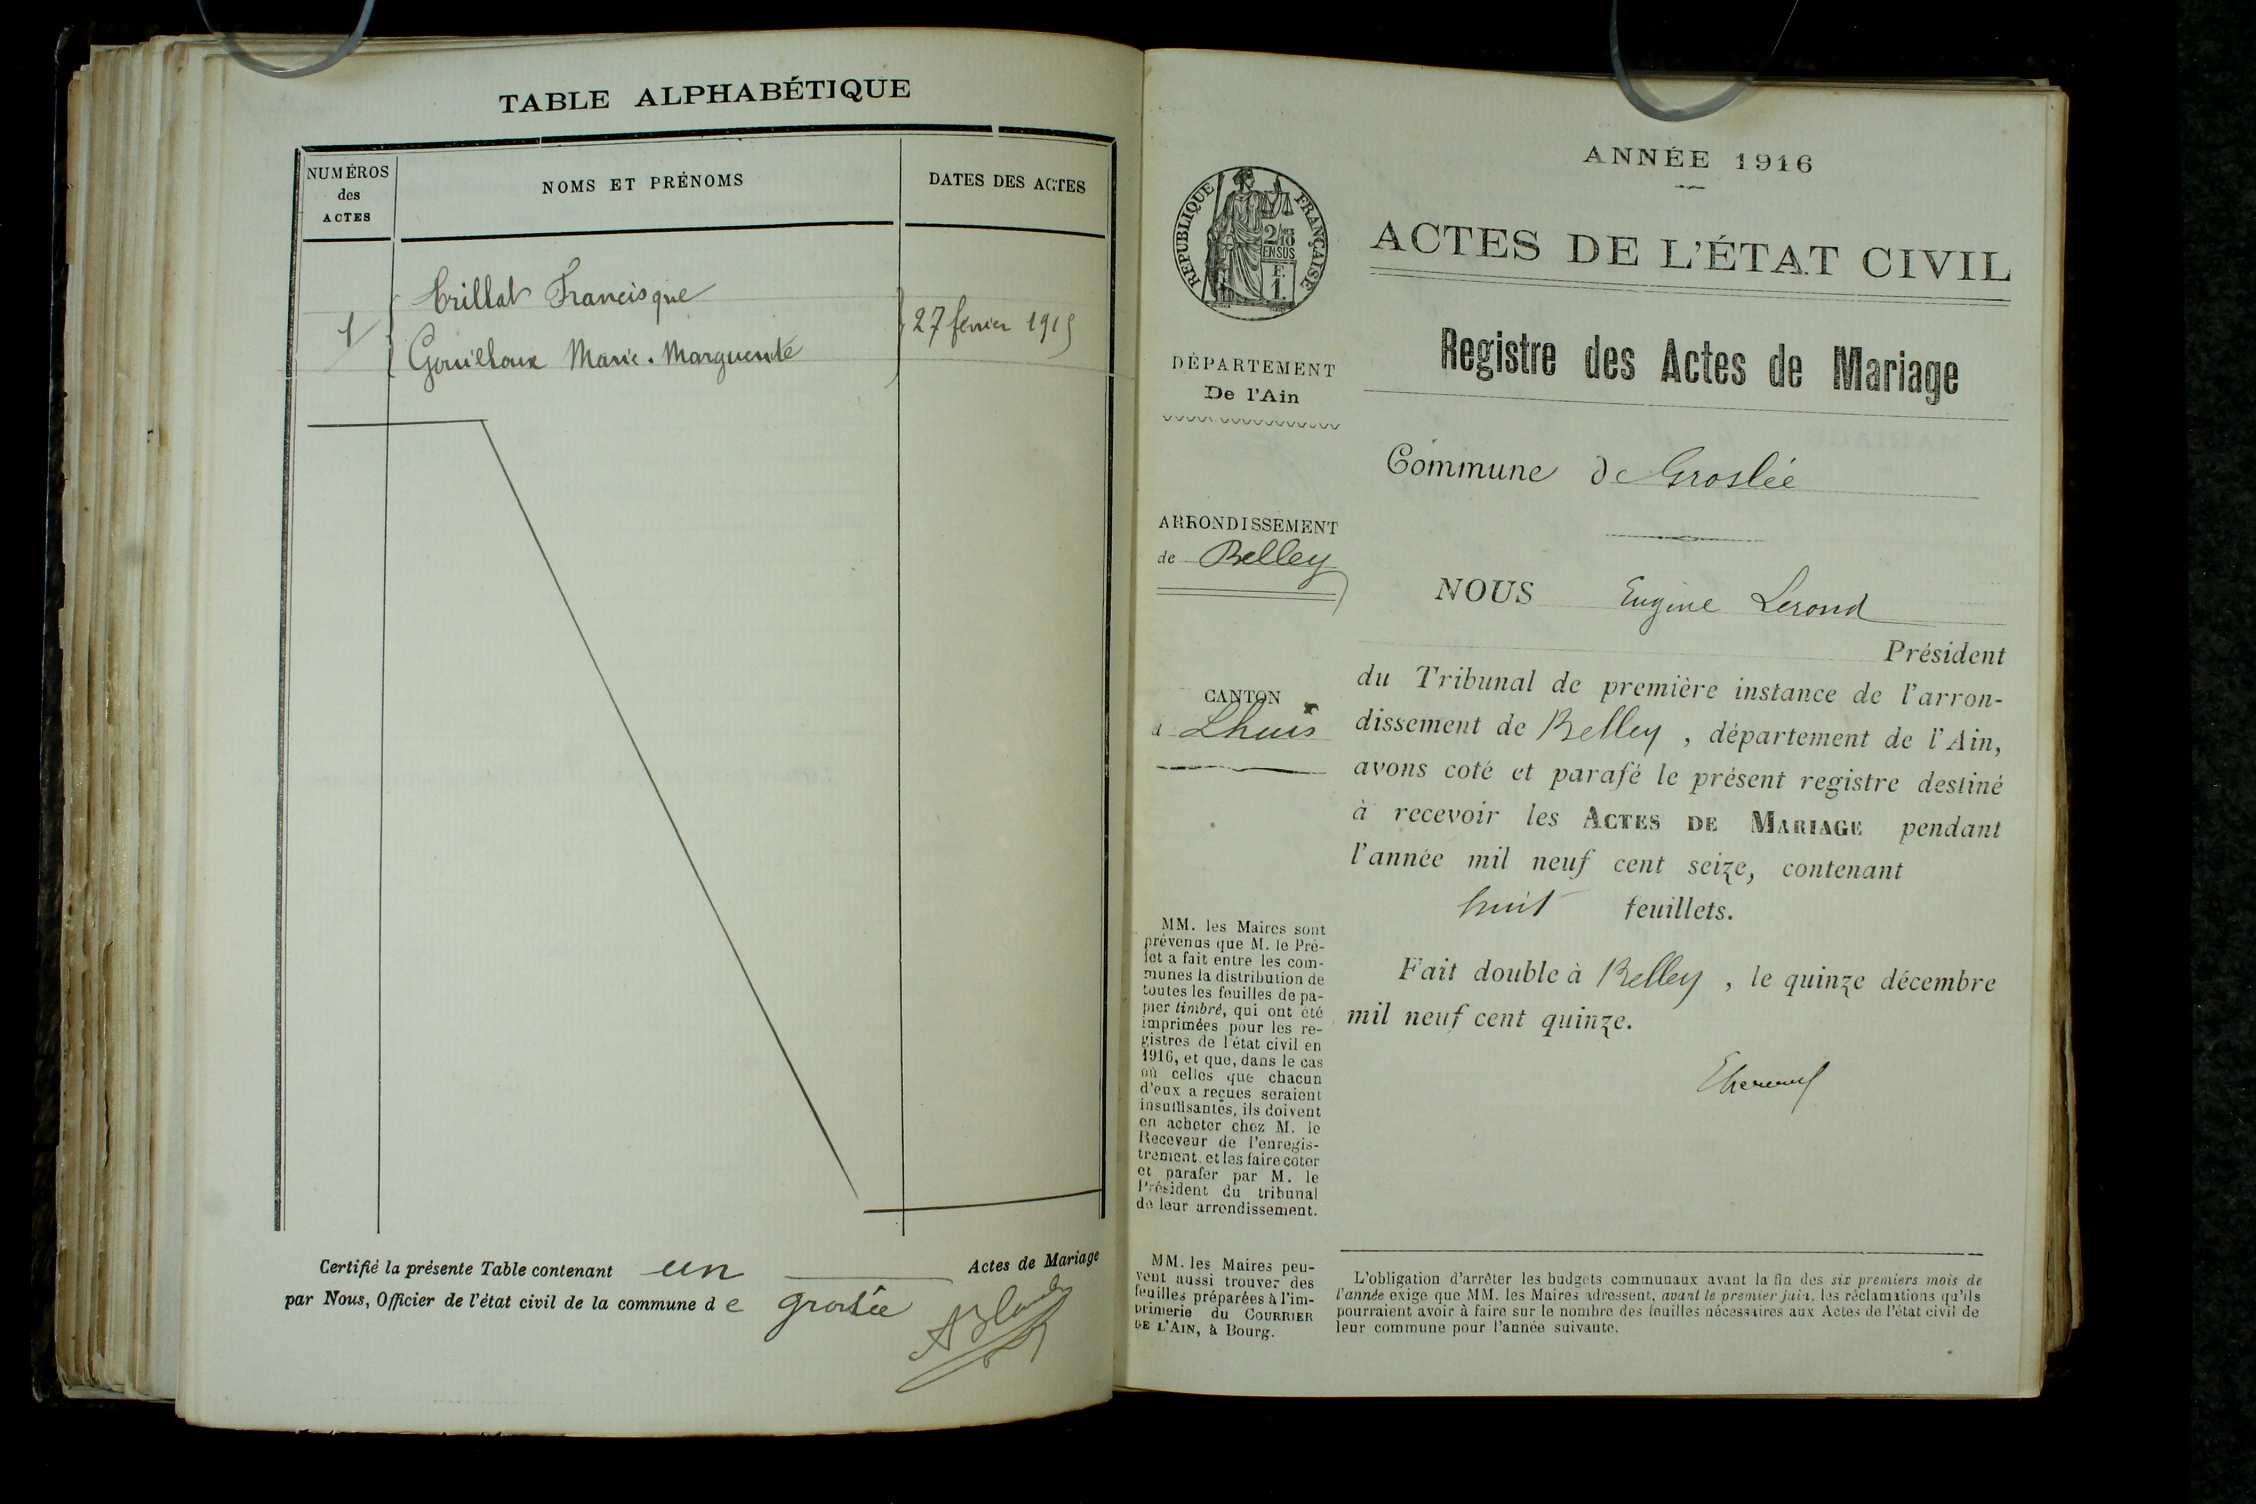 TABLE ALPHABÉTIQUE
NUMÉROS
des
ACTES
NOMS ET PRÉNOMS
DATES DES ACTES
Trillat Francisque
1
27 février 1915
Gouilloux Marie. Marguerite
Certifié la présente Table contenant un Actes de Mariage
par Nous, Officier de l'état civil de la commune de Groslée
ANNÉE 1916
RÉPUBLIQUE FRANÇAISE
ACTES DE L'ÉTAT CIVIL
Registre des Actes de Mariage
DÉPARTEMENT
De l'Ain
Commune de Groslée
ARRONDISSEMENT
de Belley
NOUS Eugène Lerond
Président
du Tribunal de première instance de l'arron-
dissement de Belley, département de l'Ain,
avons coté et parafé le présent registre destiné
à recevoir les ACTES DE MARIAGE pendant
l'année mil neuf cent seize, contenant
huit feuillets.
Fait double à Belley, le quinze décembre
mil neuf cent quinze.
CANTON
d Lhuis
MM. les Maires sont
prévenus que M. le Pré-
fet a fait entre les com-
munes la distribution de
toutes les feuilles de pa-
pier timbré, qui ont été
imprimées pour les re-
gistres de l'état civil en
1916, et que, dans le cas
où celles que chacun
d'eux a reçues seraient
insuffisantes, ils doivent
en acheter chez M. le
Receveur de l'enregis-
trement, et les faire coter
et parafer par M. le
Président du tribunal
de leur arrondissement.
MM. les Maires peu-
vent aussi trouver des
feuilles préparées à l'im-
primerie du COURRIER
DE L'AIN, à Bourg.
L'obligation d'arrêter les budgets communaux avant la fin des six premiers mois de
l'année exige que MM. les Maires adressent, avant le premier juin, les réclamations qu'ils
pourraient avoir à faire sur le nombre des feuilles nécessaires aux Actes de l'état civil de
leur commune pour l'année suivante.